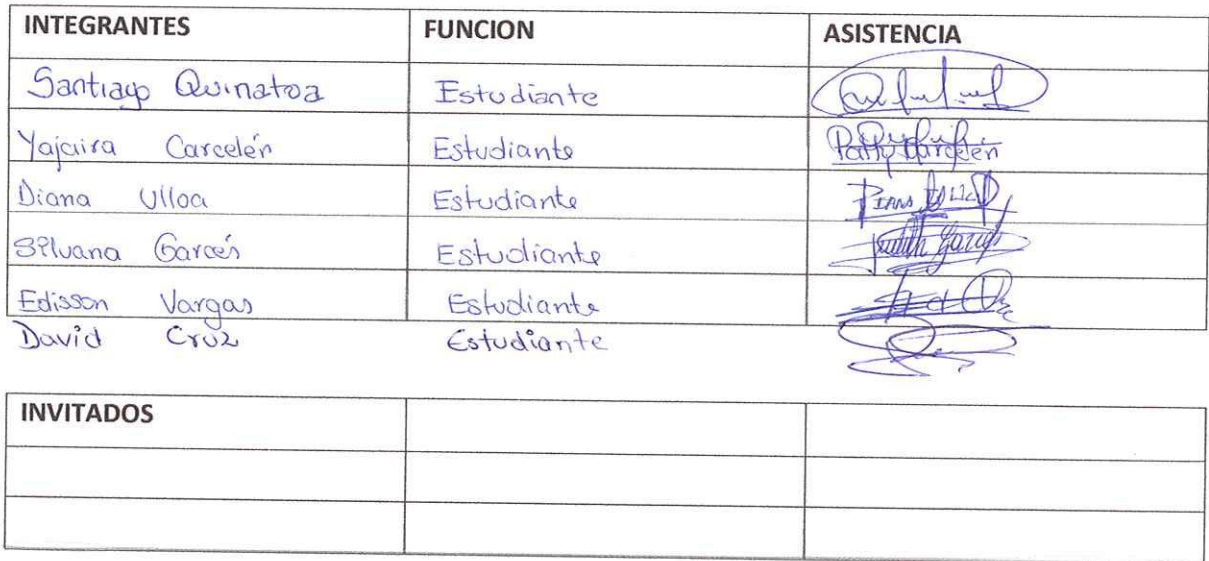 INTEGRANTES FUNCION ASISTENCIA
Santiago Quinatoa Estudiante
Yajaira Carcelén Estudiante Patty Carcelén
Diana Ulloa Estudiante
Silvana Garcés Estudiante
Edisson Vargas Estudiante
David Cruz Estudiante
INVITADOS